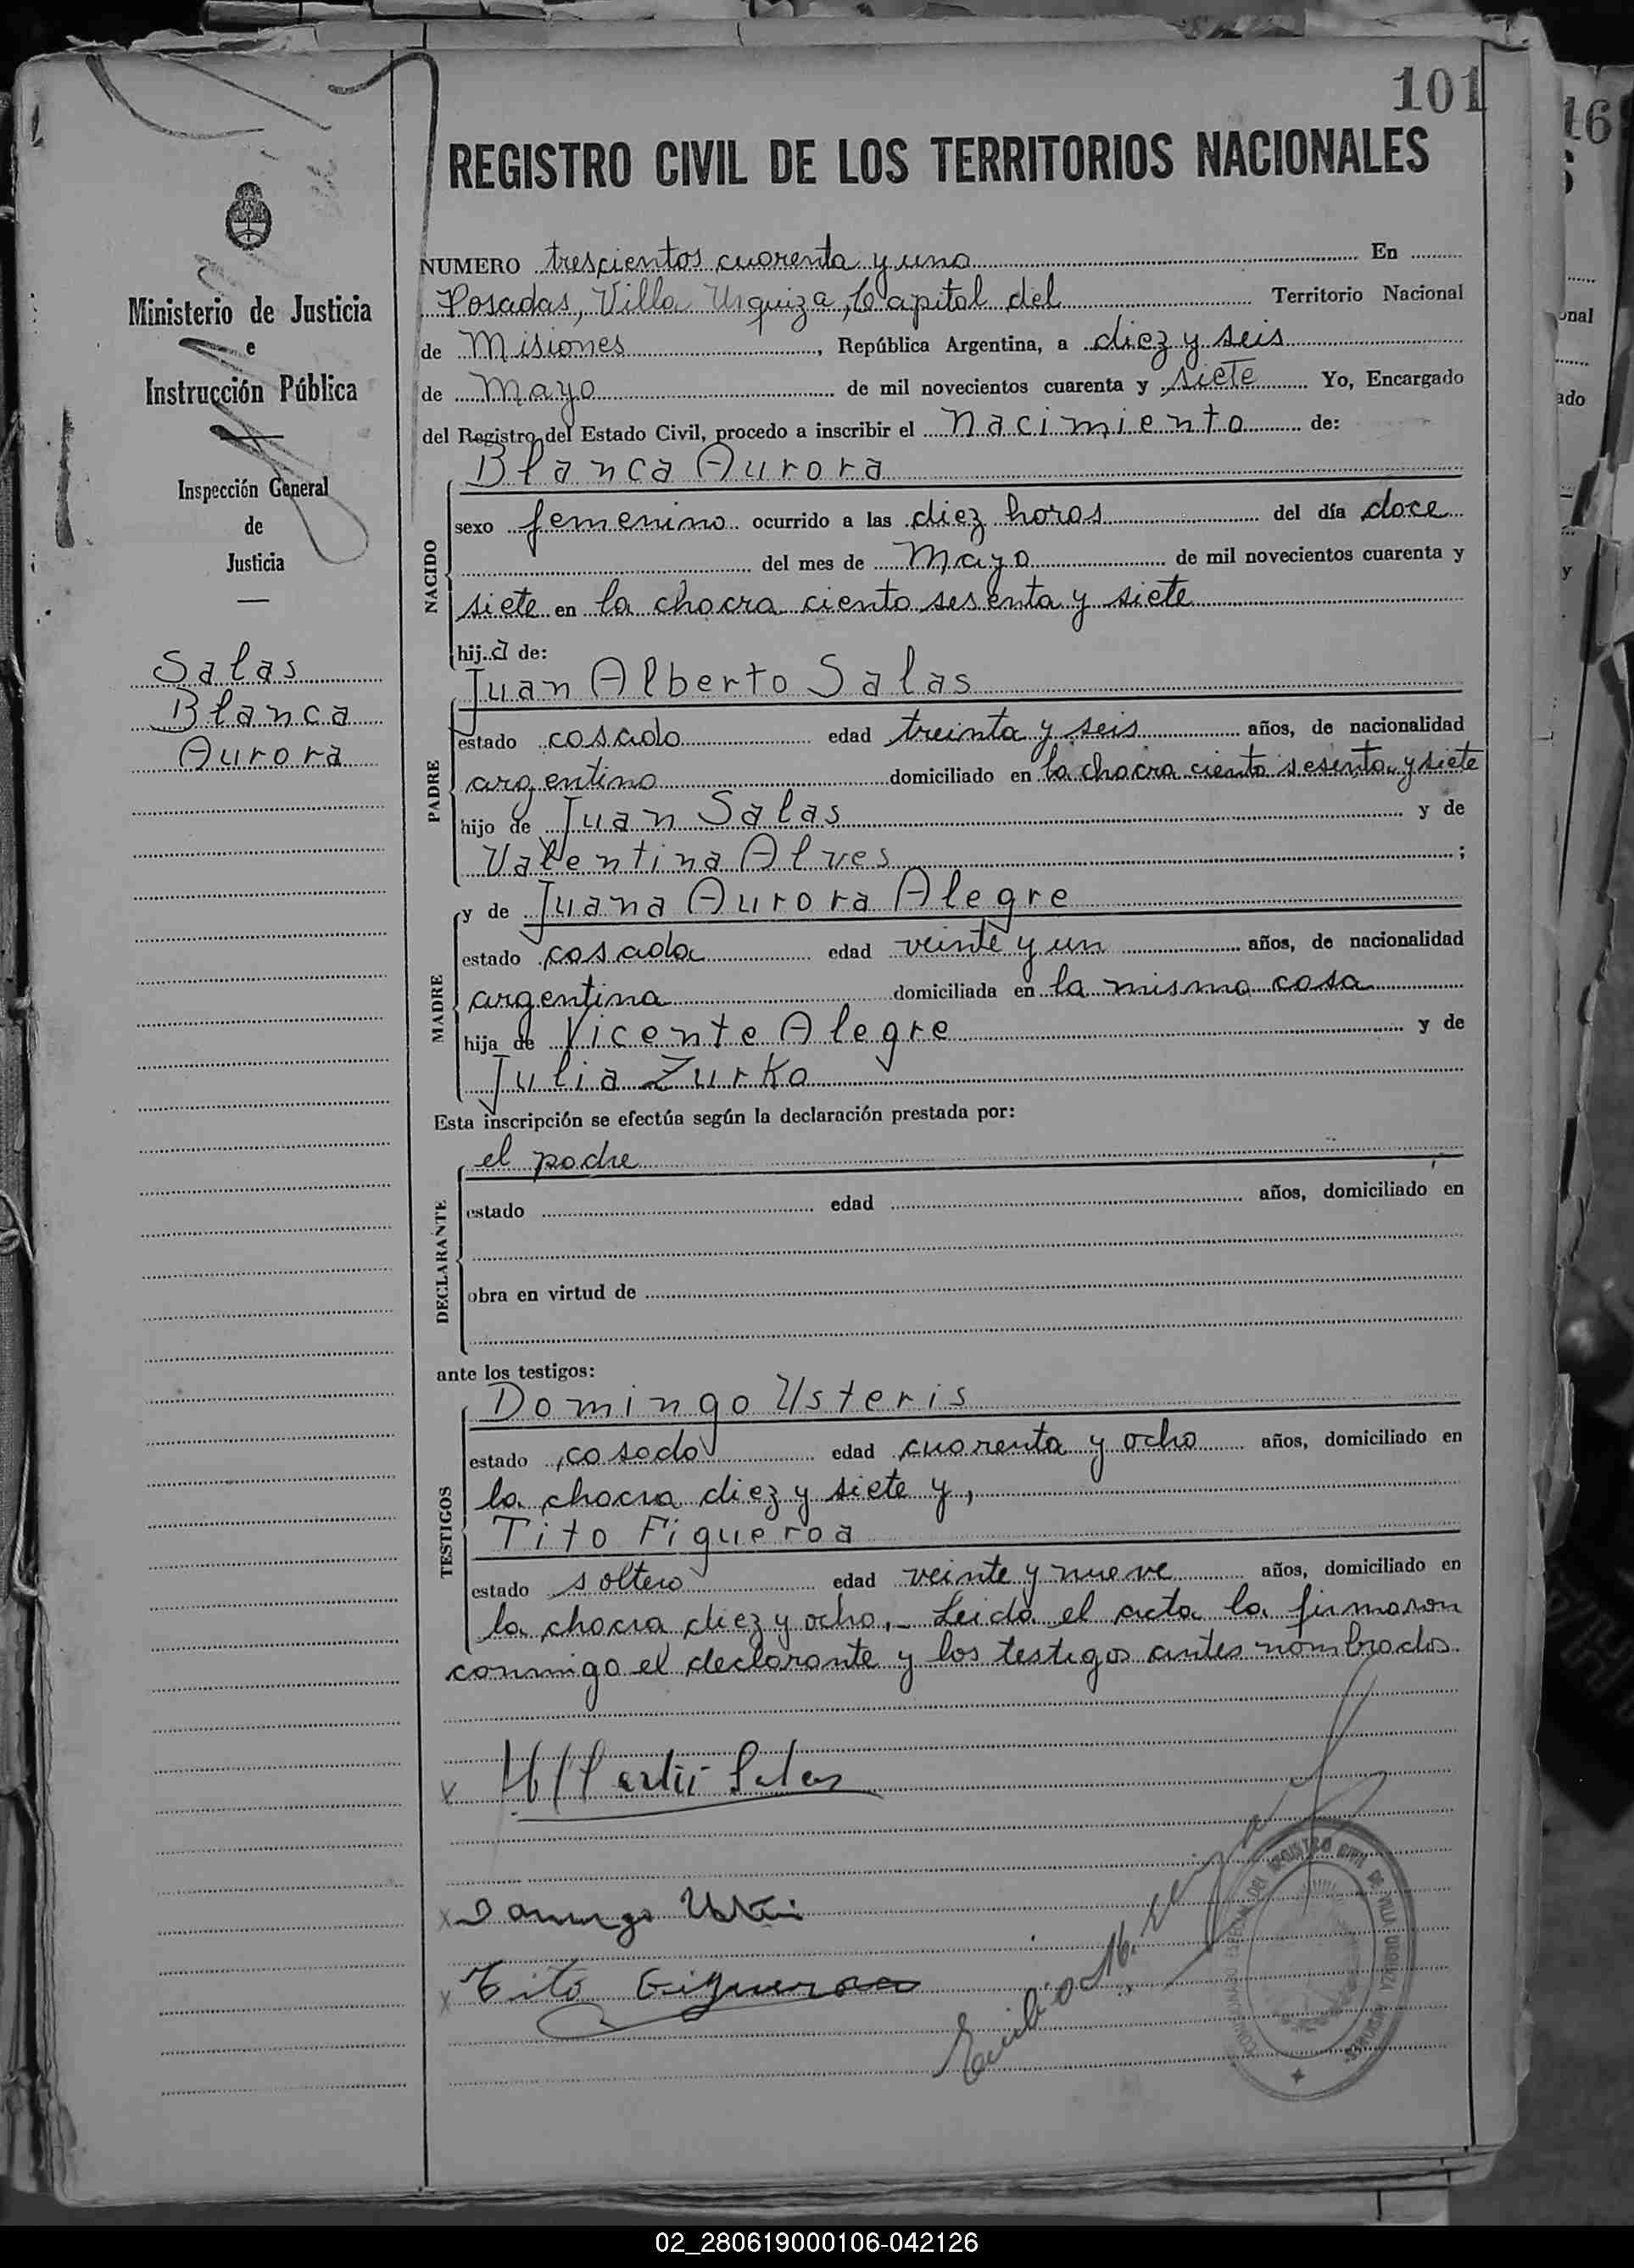 101
REGISTRO CIVIL DE LOS TERRITORIOS NACIONALES
Ministerio de Justicia
e
Instrucción Pública
Inspección General
de
Justicia
Salas
Blanca
Aurora
NUMERO trescientos cuarenta y uno En
Posadas, Villa Urquiza, Capital del Territorio Nacional
de Misiones, República Argentina, a diez y seis
de Mayo de mil novecientos cuarenta y siete Yo, Encargado
del Registro del Estado Civil, procedo a inscribir el Nacimiento de:
Blanca Aurora
NACIDO
sexo femenino ocurrido a las diez horas del día doce
del mes de Mayo de mil novecientos cuarenta y
siete en la chacra ciento sesenta y siete
hija de:
Juan Alberto Salas
PADRE
estado casado edad treinta y seis años, de nacionalidad
argentino domiciliado en la chacra ciento sesenta y siete
hijo de Juan Salas y de
Valentina Alves;
y de Juana Aurora Alegre
MADRE
estado casada edad veinte y un años, de nacionalidad
argentina domiciliada en la misma casa
hija de Vicente Alegre y de
Julia Zurko
Esta inscripción se efectúa según la declaración prestada por:
el padre
DECLARANTE
estado edad años, domiciliado en
obra en virtud de
ante los testigos:
Domingo Usteris
TESTIGOS
estado casado edad cuarenta y ocho años, domiciliado en
la chacra diez y siete y,
Tito Figueroa
estado soltero edad veinte y nueve años, domiciliado en
la chacra diez y ocho,- Leida el acta la firmaron
conmigo el declarante y los testigos antes nombrados.
x Salas
x Domingo
x Tito Figueroa
REGISTRO CIVIL DE VILLA URQUIZA
16
onal
ado
y
02_280619000106-042126